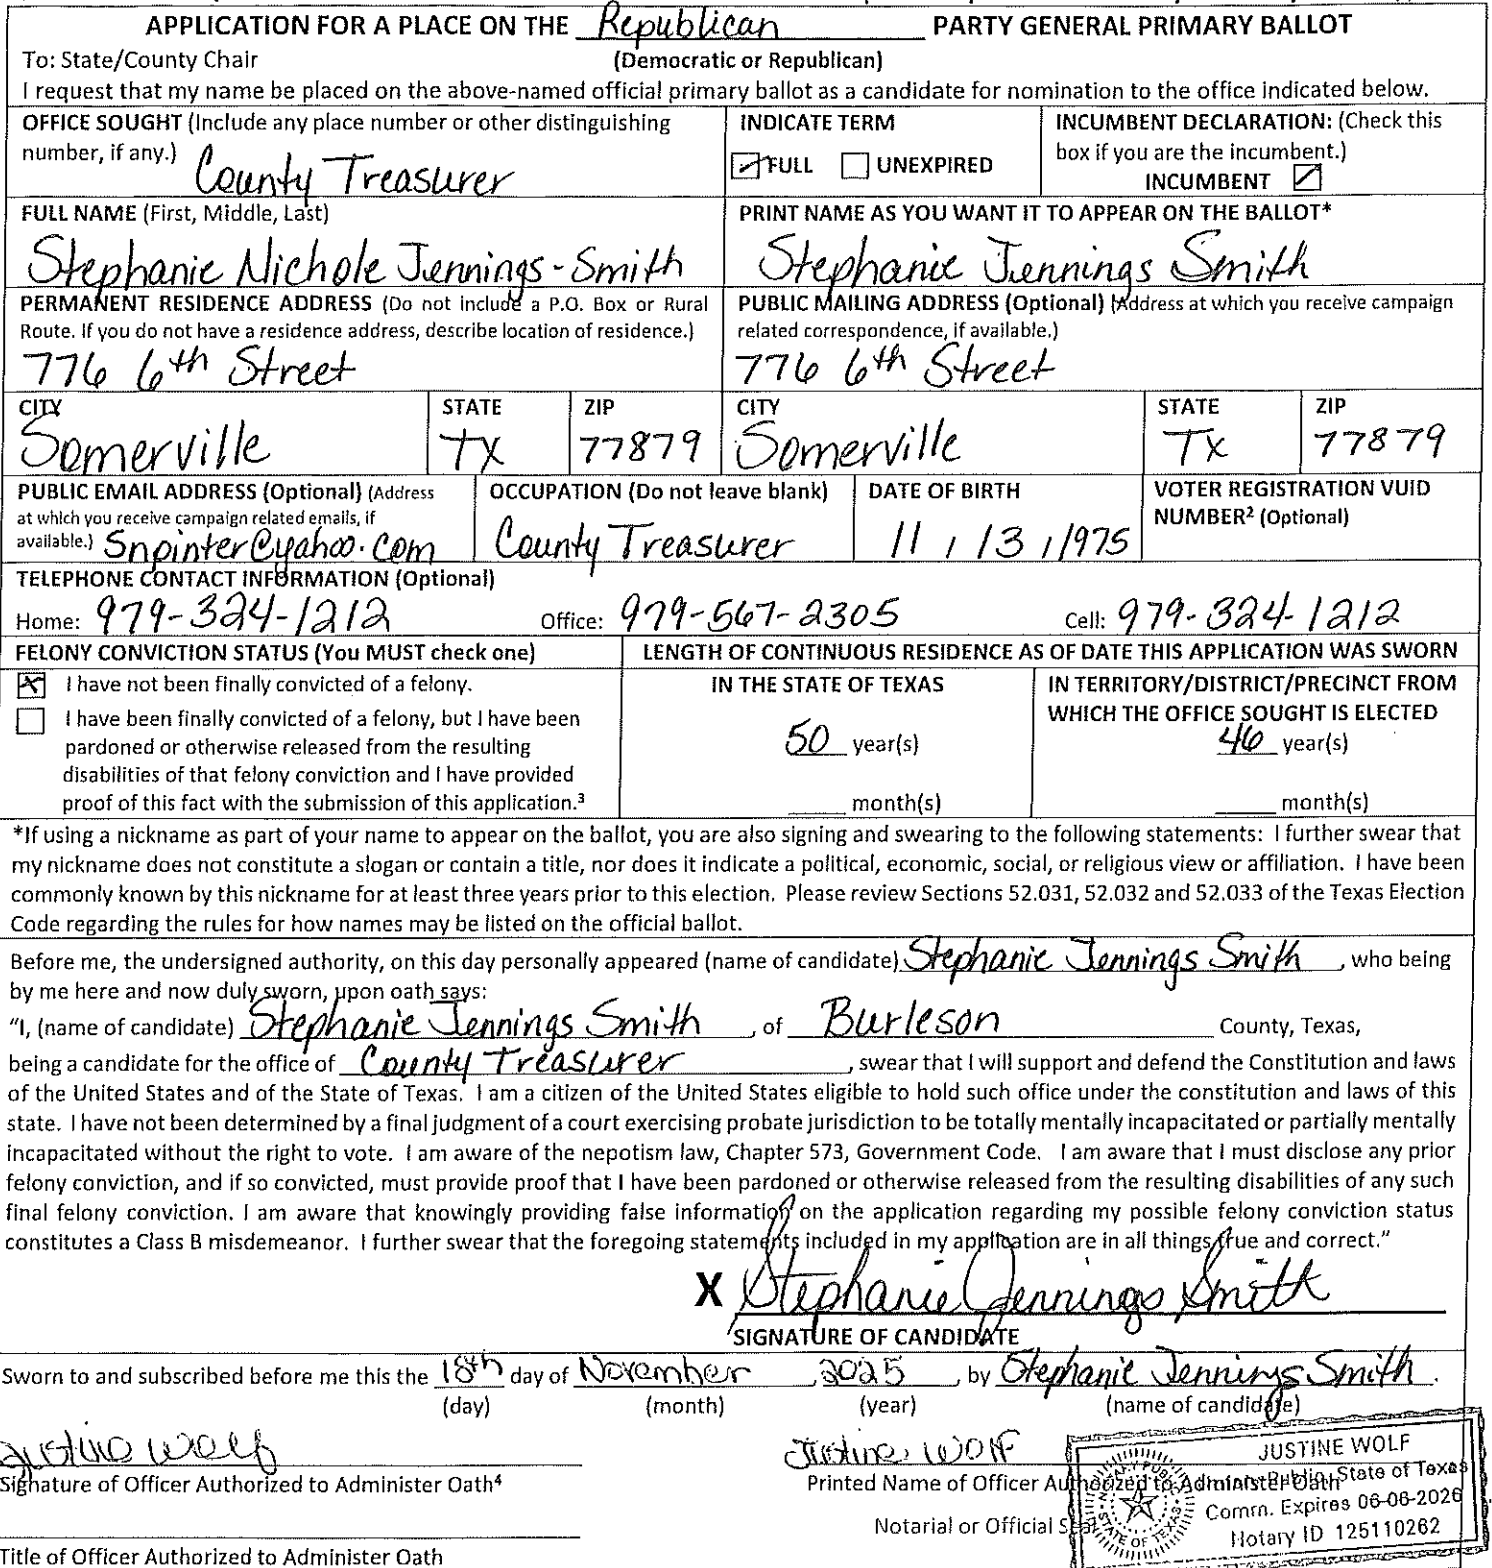 APPLICATION FOR A PLACE ON THE Republican PARTY GENERAL PRIMARY BALLOT
To: State/County Chair (Democratic or Republican)
I request that my name be placed on the above-named official primary ballot as a candidate for nomination to the office indicated below.
OFFICE SOUGHT (Include any place number or other distinguishing
number, if any.) County Treasurer
INDICATE TERM
FULL UNEXPIRED
INCUMBENT DECLARATION: (Check this
box if you are the incumbent.)
INCUMBENT
FULL NAME (First, Middle, Last)
Stephanie Nichole Jennings-Smith
PRINT NAME AS YOU WANT IT TO APPEAR ON THE BALLOT*
Stephanie Jennings Smith
PERMANENT RESIDENCE ADDRESS (Do not include a P.O. Box or Rural
Route. If you do not have a residence address, describe location of residence.)
776 6th Street
PUBLIC MAILING ADDRESS (Optional) (Address at which you receive campaign
related correspondence, if available.)
776 6th Street
CITY STATE ZIP
Somerville TX 77879
CITY STATE ZIP
Somerville Tx 77879
PUBLIC EMAIL ADDRESS (Optional) (Address
at which you receive campaign related emails, if
available.) Snpinter@yahoo.com
OCCUPATION (Do not leave blank)
County Treasurer
DATE OF BIRTH
11 / 13 / 1975
VOTER REGISTRATION VUID
NUMBER² (Optional)
TELEPHONE CONTACT INFORMATION (Optional)
Home: 979-324-1212 Office: 979-567-2305 Cell: 979-324-1212
FELONY CONVICTION STATUS (You MUST check one)
I have not been finally convicted of a felony.
I have been finally convicted of a felony, but I have been
pardoned or otherwise released from the resulting
disabilities of that felony conviction and I have provided
proof of this fact with the submission of this application.³
LENGTH OF CONTINUOUS RESIDENCE AS OF DATE THIS APPLICATION WAS SWORN
IN THE STATE OF TEXAS
50 year(s)
month(s)
IN TERRITORY/DISTRICT/PRECINCT FROM
WHICH THE OFFICE SOUGHT IS ELECTED
46 year(s)
month(s)
*If using a nickname as part of your name to appear on the ballot, you are also signing and swearing to the following statements: I further swear that
my nickname does not constitute a slogan or contain a title, nor does it indicate a political, economic, social, or religious view or affiliation. I have been
commonly known by this nickname for at least three years prior to this election. Please review Sections 52.031, 52.032 and 52.033 of the Texas Election
Code regarding the rules for how names may be listed on the official ballot.
Before me, the undersigned authority, on this day personally appeared (name of candidate) Stephanie Jennings Smith, who being
by me here and now duly sworn, upon oath says:
"I, (name of candidate) Stephanie Jennings Smith, of Burleson County, Texas,
being a candidate for the office of County Treasurer, swear that I will support and defend the Constitution and laws
of the United States and of the State of Texas. I am a citizen of the United States eligible to hold such office under the constitution and laws of this
state. I have not been determined by a final judgment of a court exercising probate jurisdiction to be totally mentally incapacitated or partially mentally
incapacitated without the right to vote. I am aware of the nepotism law, Chapter 573, Government Code. I am aware that I must disclose any prior
felony conviction, and if so convicted, must provide proof that I have been pardoned or otherwise released from the resulting disabilities of any such
final felony conviction. I am aware that knowingly providing false information on the application regarding my possible felony conviction status
constitutes a Class B misdemeanor. I further swear that the foregoing statements included in my application are in all things true and correct."
X Stephanie Jennings Smith
SIGNATURE OF CANDIDATE
Sworn to and subscribed before me this the 18th day of November, 2025, by Stephanie Jennings Smith.
(day) (month) (year) (name of candidate)
Justine Wolf
Signature of Officer Authorized to Administer Oath⁴
Justine Wolf
Printed Name of Officer Authorized to Administer Oath
Notarial or Official Seal
JUSTINE WOLF
Notary Public, State of Texas
Comm. Expires 06-06-2026
Notary ID 125110262
NOTARY PUBLIC
STATE OF TEXAS
Title of Officer Authorized to Administer Oath